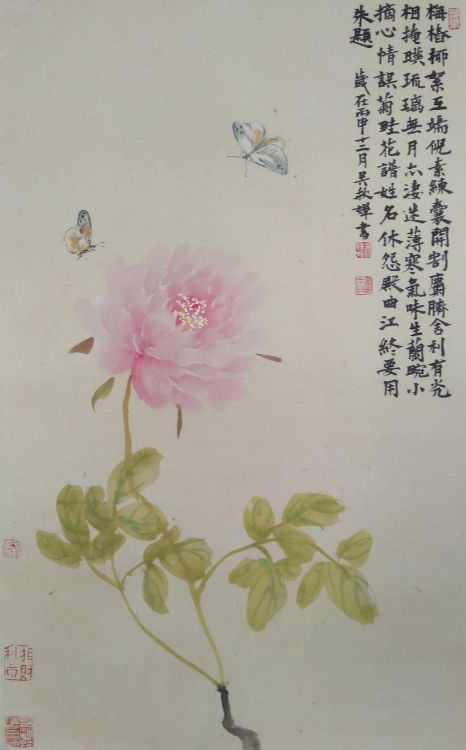 梅樁柳絮互端倪素練囊開割麝臍舍利有光
相掩暎琉璃無月亦淒迷薄寒氣味生蘭畹小
摘心情誤菊畦花譜姓名休怨殿曲江終要用
朱題
歲在丙申十二月吴秋嬋書
招財
利市